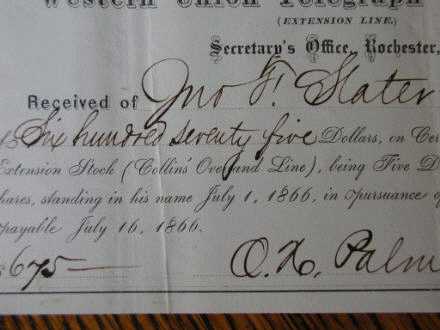 Western Union Telegraph
(EXTENSION LINE.)
Secretary's Office, Rochester,
Received of Jno F. Slater
Six hundred seventy five Dollars, on Cer
Extension Stock (Collin's Overland Line), being Five D
hares, standing in his name July 1, 1866, in pursuance of
payable July 16, 1866.
$675 — O. H. Palm